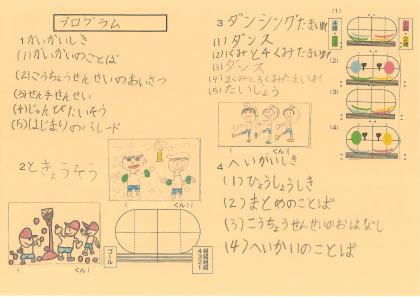 プログラム
1かいかいしき
(1)かいかいのことば
(2)こうちょうせんせいのあいさつ
(3)せん手せんせい
(4)じゅんびたいそう
(5)はじまりのパレード
2ときょうそう
( くん)( )
( くん)( )
ゴール
3ダンシングたまいれ
(1)ダンス
(2)1くみと4くみたまいれ
(3)ダンス
(4)2くみと3くみたまいれ
(5)たいじょう
( くん)
4 へいかいしき
(1)ひょうしょうしき
(2)まとめのことば
(3)こうちょうせんせいのおはなし
(4)へいかいのことば
(1)
(2)
(3)
(4)